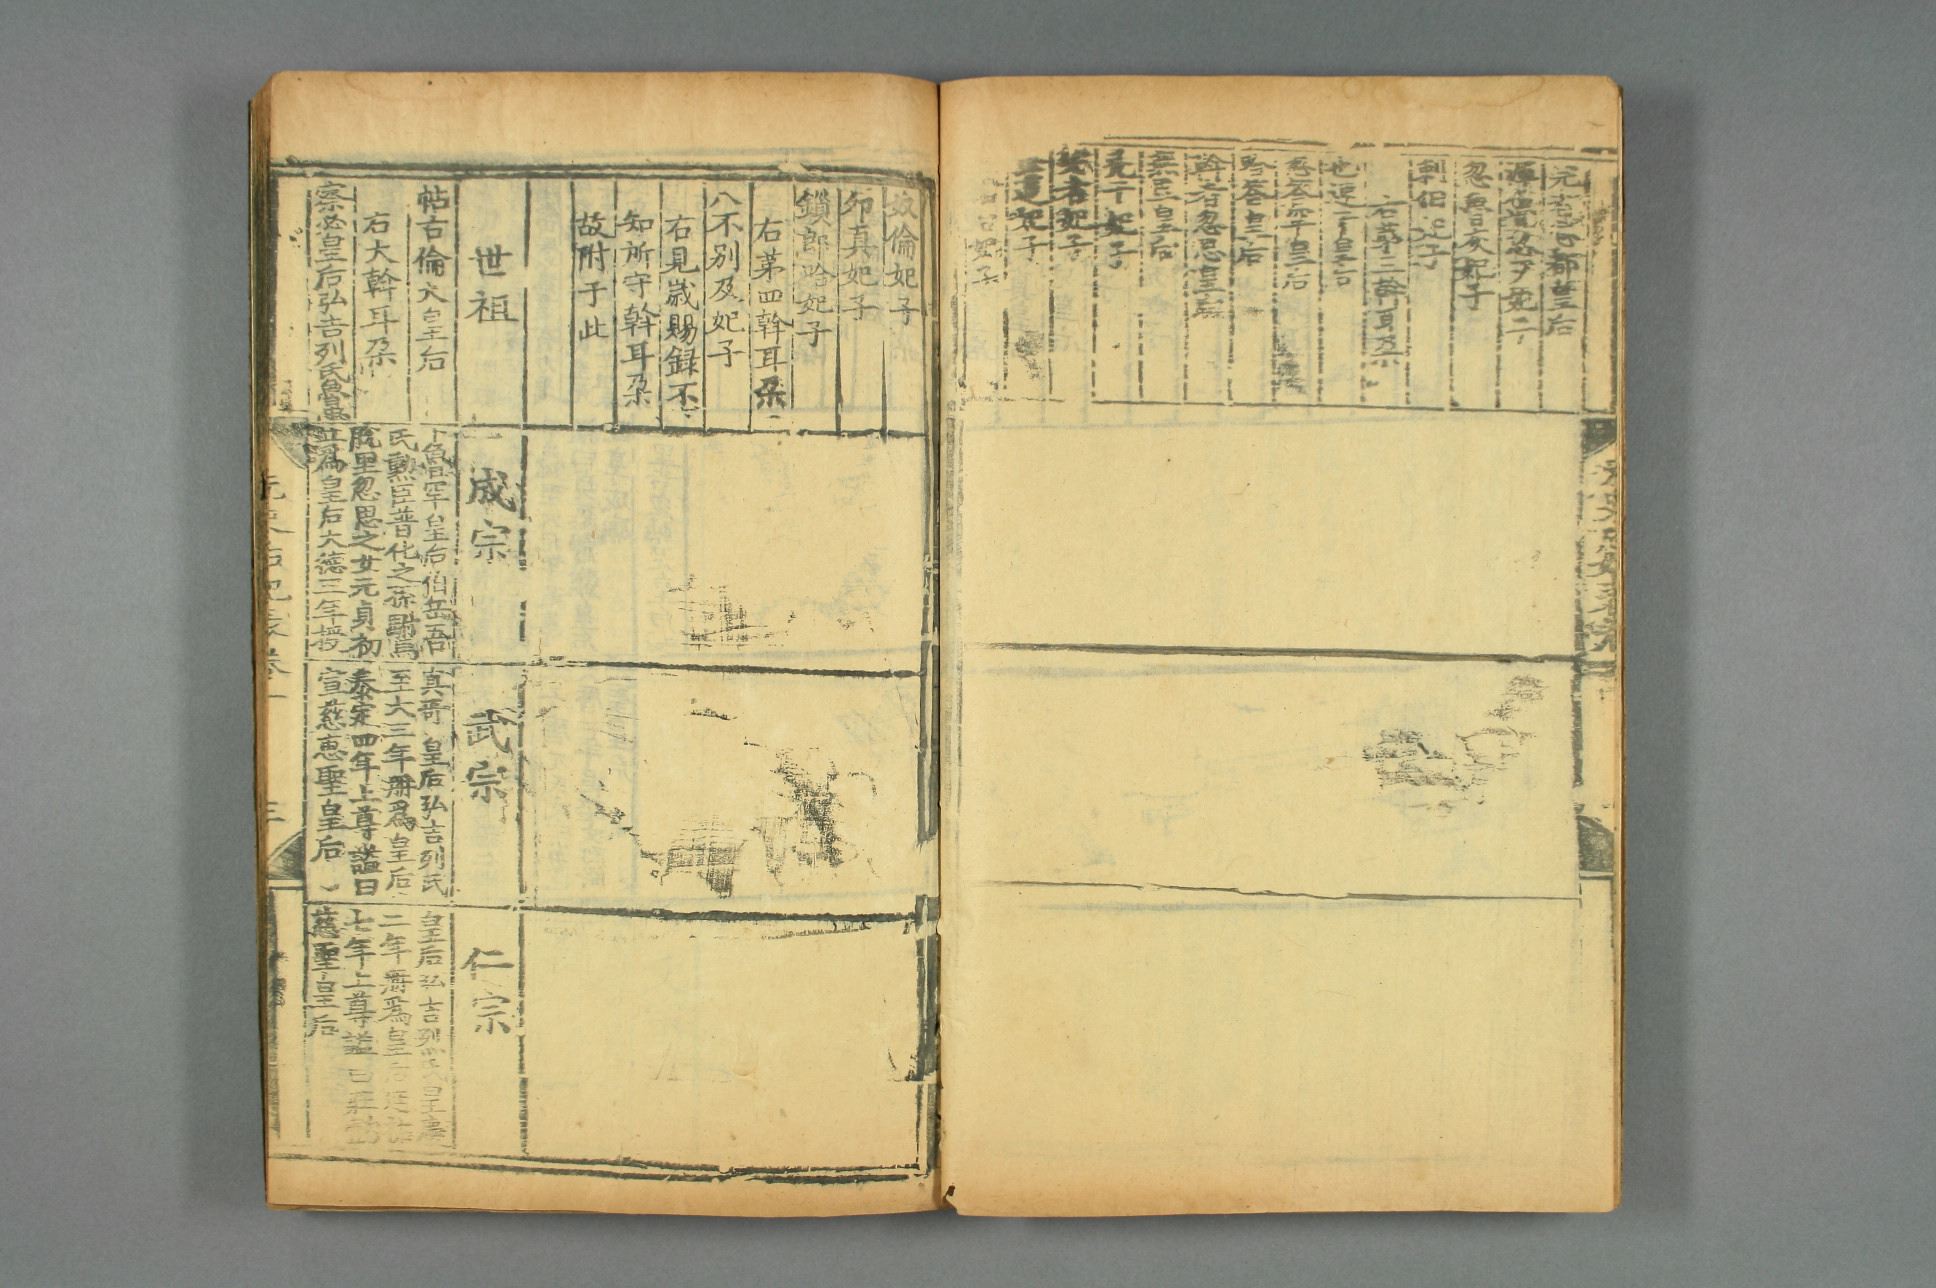 忽魯灰妃子
右第三斡耳朶
也速干皇后
忽荅罕皇后
荅皇后
斡者忽思皇后
完者妃子
奴倫妃子
卯真妃子
鎖郎哈妃子
右第四斡耳朶
八不別及妃子
右見歲賜録不
知所守斡耳朶
故附于此
世祖
帖古倫大皇后
右大斡耳朶
察必皇后弘吉列氏魯
成宗
卜魯罕皇后伯岳吾
氏勲臣普化之孫駙馬
脫里忽思之女元貞初
立爲皇后大德三年授
武宗
真哥皇后弘吉列氏
至大三年冊爲皇后
泰定四年上尊謚曰
宣慈惠聖皇后
仁宗
皇后弘吉列氏皇慶
二年冊爲皇后延祐
七年上尊謚曰莊懿
慈聖皇后
元史后妃表卷一
三